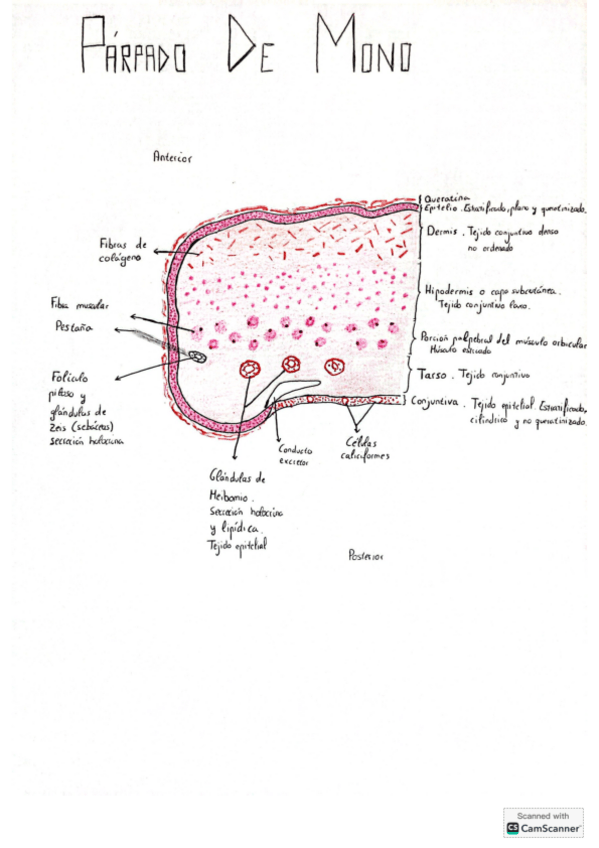 PÁRPADO DE MONO
Anterior
Queratina
Epitelio. Estratificado, plano y queratinizado.
Dermis. Tejido conjuntivo denso
no ordenado
Fibras de
colágeno
Hipodermis o capa subcutánea.
Tejido conjuntivo laxo.
Fibra muscular
Pestaña
Porción palpebral del músculo orbicular
Músculo estriado
Tarso. Tejido conjuntivo
Folículo
piloso y
glándulas de
Zeis (sebáceas)
secreción holocrina
Conjuntiva. Tejido epitelial Estratificado,
cilíndrico y no queratinizado.
Conducto
excretor
Células
caliciformes
Glándulas de
Meibomio.
Secreción holocrina
y lipídica.
Tejido epitelial
Posterior
Scanned with
CS CamScanner